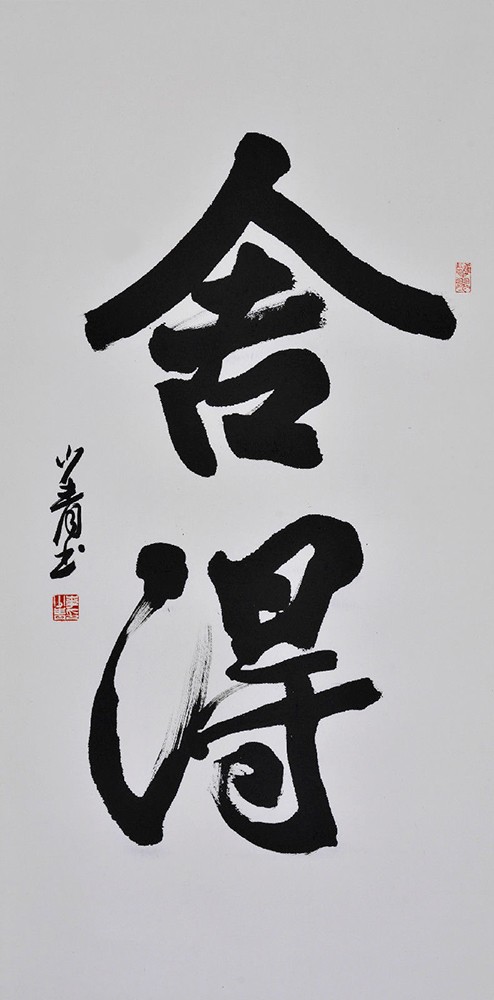 舍得
小青书